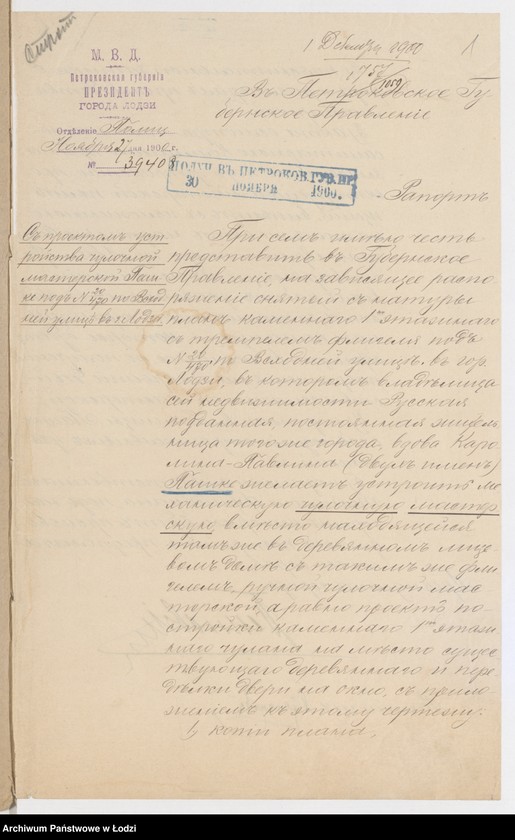 1 Декабря 1900
1
М. В. Д.
Петроковская губернія
ПРЕЗИДЕНТЪ
ГОРОДА ЛОДЗИ
Отдѣленіе Полиц
Ноября 27 дня 1900 г.
№ 39408
Въ Петроковское Гу-
бернское Правленіе
ПОЛУЧ. ВЪ ПЕТРОКОВ. ГУБ. ПР.
30 НОЯБРЯ 1900.
Рапортъ
Съ проектомъ уст
ройства чулочной
мастерской Паш
ке подъ № по Всход
ней улицѣ въ г. Лодзи
При семъ имѣю честь
представить въ Губернское
Правленіе, на зависящее распо
ряженіе снятый съ натуры
планъ каменнаго 1но этажнаго
съ тремпелемъ флигеля подъ
№ по Всходной улицѣ въ гор.
Лодзи, въ которомъ владѣлица
сей недвижимости Русская
подданная, постоянная житель
ница того же города, вдова Каро
лина-Павлина (двухъ именъ)
Пашке желаетъ устроить ме
ханическую чулочную мастер
скую вмѣсто находящейся
тамъ же въ деревянномъ лице
вомъ домѣ съ такимъ же фли
гелемъ, ручной чулочной мас
терской, а равно проектъ по-
стройки каменнаго 1но этаж
наго чулана на мѣсто сущес
твующаго деревяннаго и пере
дѣлки двери на окно, съ прило-
женіемъ къ этому чертежу:
1, копіи плана,
Archiwum Państwowe w Łodzi